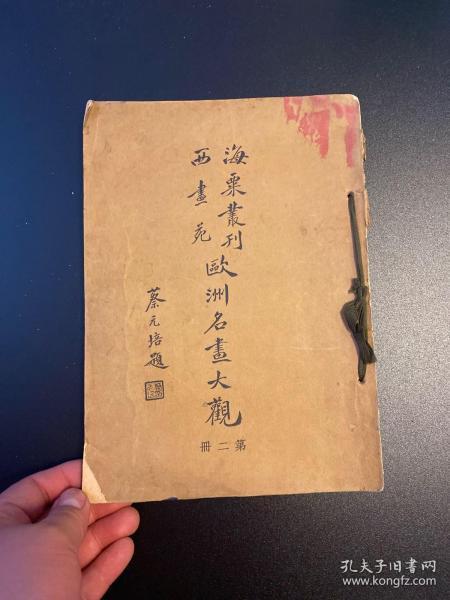 海粟叢刊
西畫苑
歐洲名畫大觀
第二冊
蔡元培題
孔夫子旧书网
www.kongfz.com